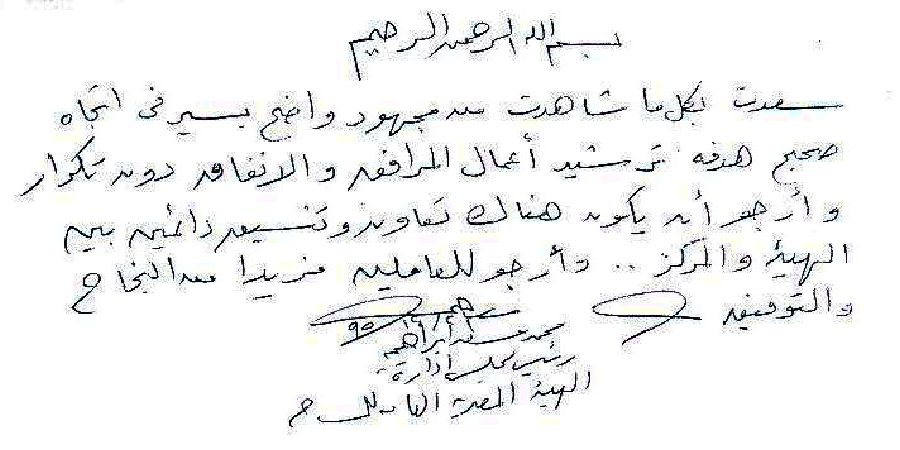 بسم الله الرحمن الرحيم
سعدت بكل ما شاهدت من مجهود واضح يسير فى اتجاه
صحيح هدفه ترشيد أعمال المرافق والانفاق دون تكرار
وأرجو أن يكون هناك تعاون وتنسيق دائمين بين
الهيئة والمركز .. وأرجو للعاملين مزيدا من النجاح
والتوفيق
محمد ابراهيم
رئيس مجلس ادارة
الهيئة المصرية العامة